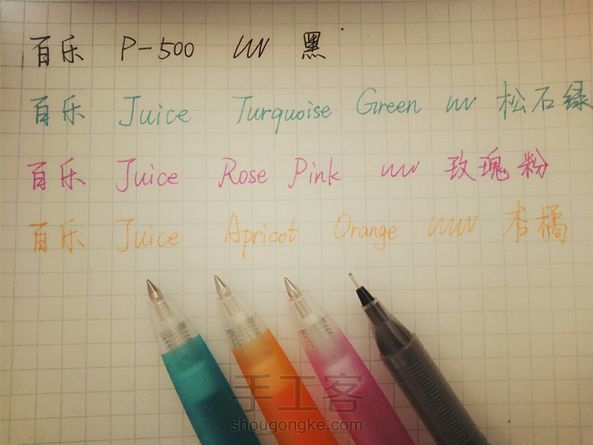 百乐 P-500 黑
百乐 Juice Turquoise Green 松石绿
百乐 Juice Rose Pink 玫瑰粉
百乐 Juice Apricot Orange 杏橘
手工客
shougongke.com